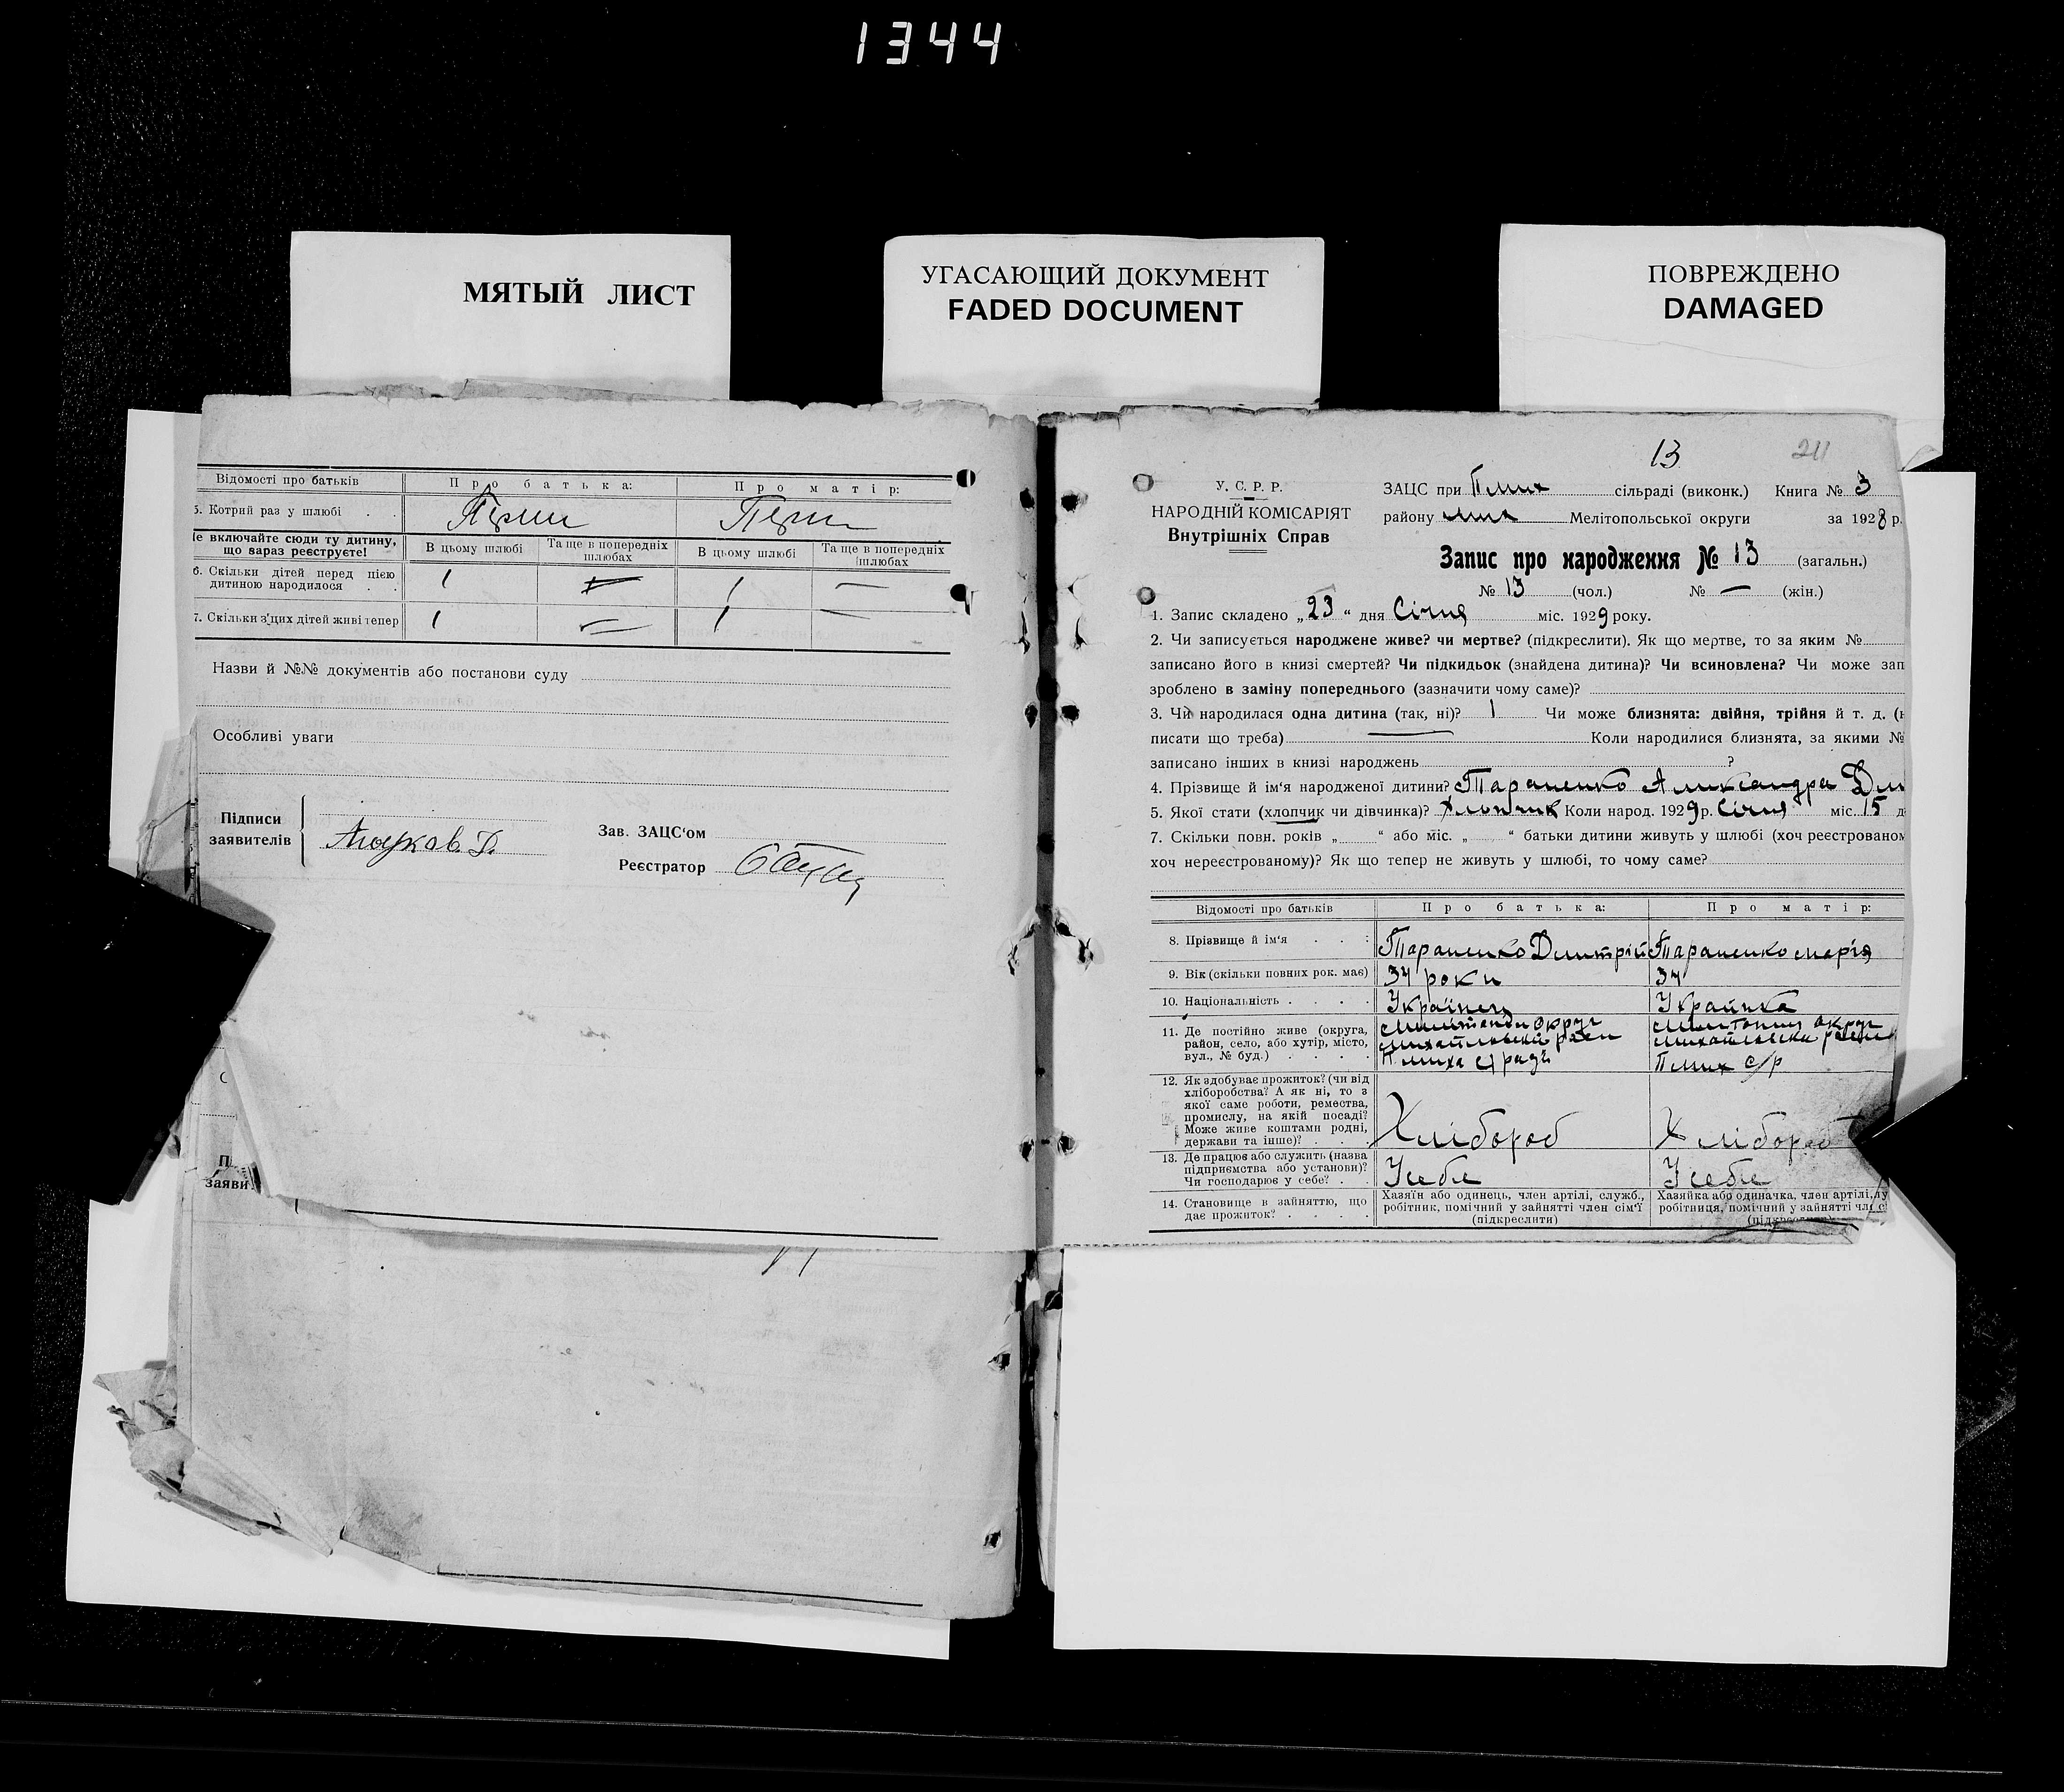 1344
МЯТЫЙ ЛИСТ
УГАСАЮЩИЙ ДОКУМЕНТ
FADED DOCUMENT
ПОВРЕЖДЕНО
DAMAGED
Відомості про батьків
Про батька:
Про матір:
5. Котрий раз у шлюбі . .
Не включайте сюди ту дитину,
що зараз реєструєте!
В цьому шлюбі
Та ще в попередніх
шлюбах
В цьому шлюбі
Та ще в попередніх
шлюбах
6. Скільки дітей перед цією
дитиною народилося . .
1 — 1 —
7. Скільки з цих дітей живі тепер
1 — 1 —
Назви й №№ документів або постанови суду
Особливі уваги
Підписи
заявителів
Зав. ЗАЦС'ом
Реєстратор
заяви
13
211
У. С. Р. Р.
НАРОДНІЙ КОМІСАРІЯТ
Внутрішніх Справ
ЗАЦС при сільраді (виконк.) Книга № 3
району Мелітопольської округи за 1928 р.
Запис про народження № 13 (загальн.)
№ 13 (чол.) № — (жін.)
1. Запис складено „23“ дня Січня міс. 1929 року.
2. Чи записується народжене живе? чи мертве? (підкреслити). Як що мертве, то за яким №
записано його в книзі смертей? Чи підкидьок (знайдена дитина)? Чи всиновлена? Чи може зап
зроблено в заміну попереднього (зазначити чому саме)?
3. Чи народилася одна дитина (так, ні)? 1 Чи може близнята: двійня, трійня й т. д. (н
писати що треба) — Коли народилися близнята, за якими №
записано інших в книзі народжень ?
4. Прізвище й ім'я народженої дитини? Тараненко Александра Дми
5. Якої стати (хлопчик чи дівчинка)? Хлопчик Коли народ. 1929 р. Січня міс. 15 д
7. Скільки повн. років „ “ або міс. „ “ батьки дитини живуть у шлюбі (хоч реєстрованом
хоч нереєстрованому)? Як що тепер не живуть у шлюбі, то чому саме?
Відомості про батьків
Про батька:
Про матір:
8. Прізвище й ім'я . . :
Тараненко Дмитрій
Тараненко Марія
9. Вік (скільки повних рок. має)
34 роки
34
10. Національність . . . .
Українец
Украинка
11. Де постійно живе (округа,
район, село, або хутір, місто,
вул., № буд.) . . . .
12. Як здобуває прожиток? (чи від
хліборобства? А як ні, то з
якої саме роботи, ремества,
промислу, на якій посаді?
Може живе коштами родні,
держави та інше)? . . .
Хлібороб
Хлібороб
13. Де працює або служить (назва
підприємства або установи)?
Чи господарює у себе? . .
У себе
У себе
14. Становище в зайняттю, що
дає прожиток? . . . .
Хазяїн або одинець, член артілі, служб.,
робітник, помічний у зайнятті член сім'ї
(підкреслити)
Хазяйка або одиначка, член артілі,
робітниця, помічний у зайнятті
(підкреслити)